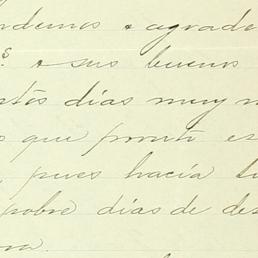 ndemos o agrade
s. a sus buenos
stos días muy m
s que pronto es
, pues hacía ti
pobre días de des
ora.